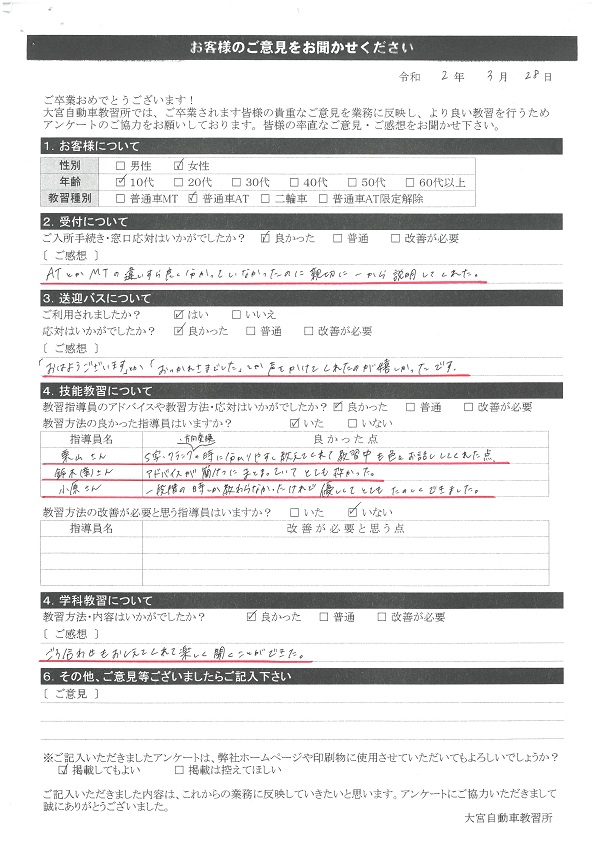 お客様のご意見をお聞かせください
令和 2 年 3 月 28 日
ご卒業おめでとうございます！
大宮自動車教習所では、ご卒業されます皆様の貴重なご意見を業務に反映し、より良い教習を行うため
アンケートのご協力をお願いしております。皆様の率直なご意見・ご感想をお聞かせ下さい。
1. お客様について
性別 □ 男性 ☑ 女性
年齢 ☑ 10代 □ 20代 □ 30代 □ 40代 □ 50代 □ 60代以上
教習種別 □ 普通車MT ☑ 普通車AT □ 二輪車 □ 普通車AT限定解除
2. 受付について
ご入所手続き・窓口応対はいかがでしたか？ ☑ 良かった □ 普通 □ 改善が必要
〔 ご感想 〕
ATとかMTの違いすら良く分かっていなかったのに親切に一から説明してくれた。
3. 送迎バスについて
ご利用されましたか？ ☑ はい □ いいえ
応対はいかがでしたか？ ☑ 良かった □ 普通 □ 改善が必要
〔 ご感想 〕
「おはようございます」とか「おつかれさまでした」とか声をかけてくれたのが嬉しかったです。
4. 技能教習について
教習指導員のアドバイスや教習方法・応対はいかがでしたか？ ☑ 良かった □ 普通 □ 改善が必要
教習方法の良かった指導員はいますか？ ☑ いた □ いない
指導員名 良かった点
・方向変換
栗山さん S字・クランクの時に分かりやすく教えてくれて教習中も色々お話ししてくれた点
鈴木(衛)さん アドバイスが簡けつにまとまっていてとても良かった。
小原さん 一段階の時しか教わらなかったけれど優しくてとてもたのしくできました。
教習方法の改善が必要と思う指導員はいますか？ □ いた ☑ いない
指導員名 改善が必要と思う点
4. 学科教習について
教習方法・内容はいかがでしたか？ ☑ 良かった □ 普通 □ 改善が必要
〔 ご感想 〕
ごろ合わせもおしえてくれて楽しく聞くことができた。
6. その他、ご意見等ございましたらご記入下さい
〔 ご意見 〕
※ご記入いただきましたアンケートは、弊社ホームページや印刷物に使用させていただいてもよろしいでしょうか？
☑ 掲載してもよい □ 掲載は控えてほしい
ご記入いただきました内容は、これからの業務に反映していきたいと思います。アンケートにご協力いただきまして
誠にありがとうございました。
大宮自動車教習所